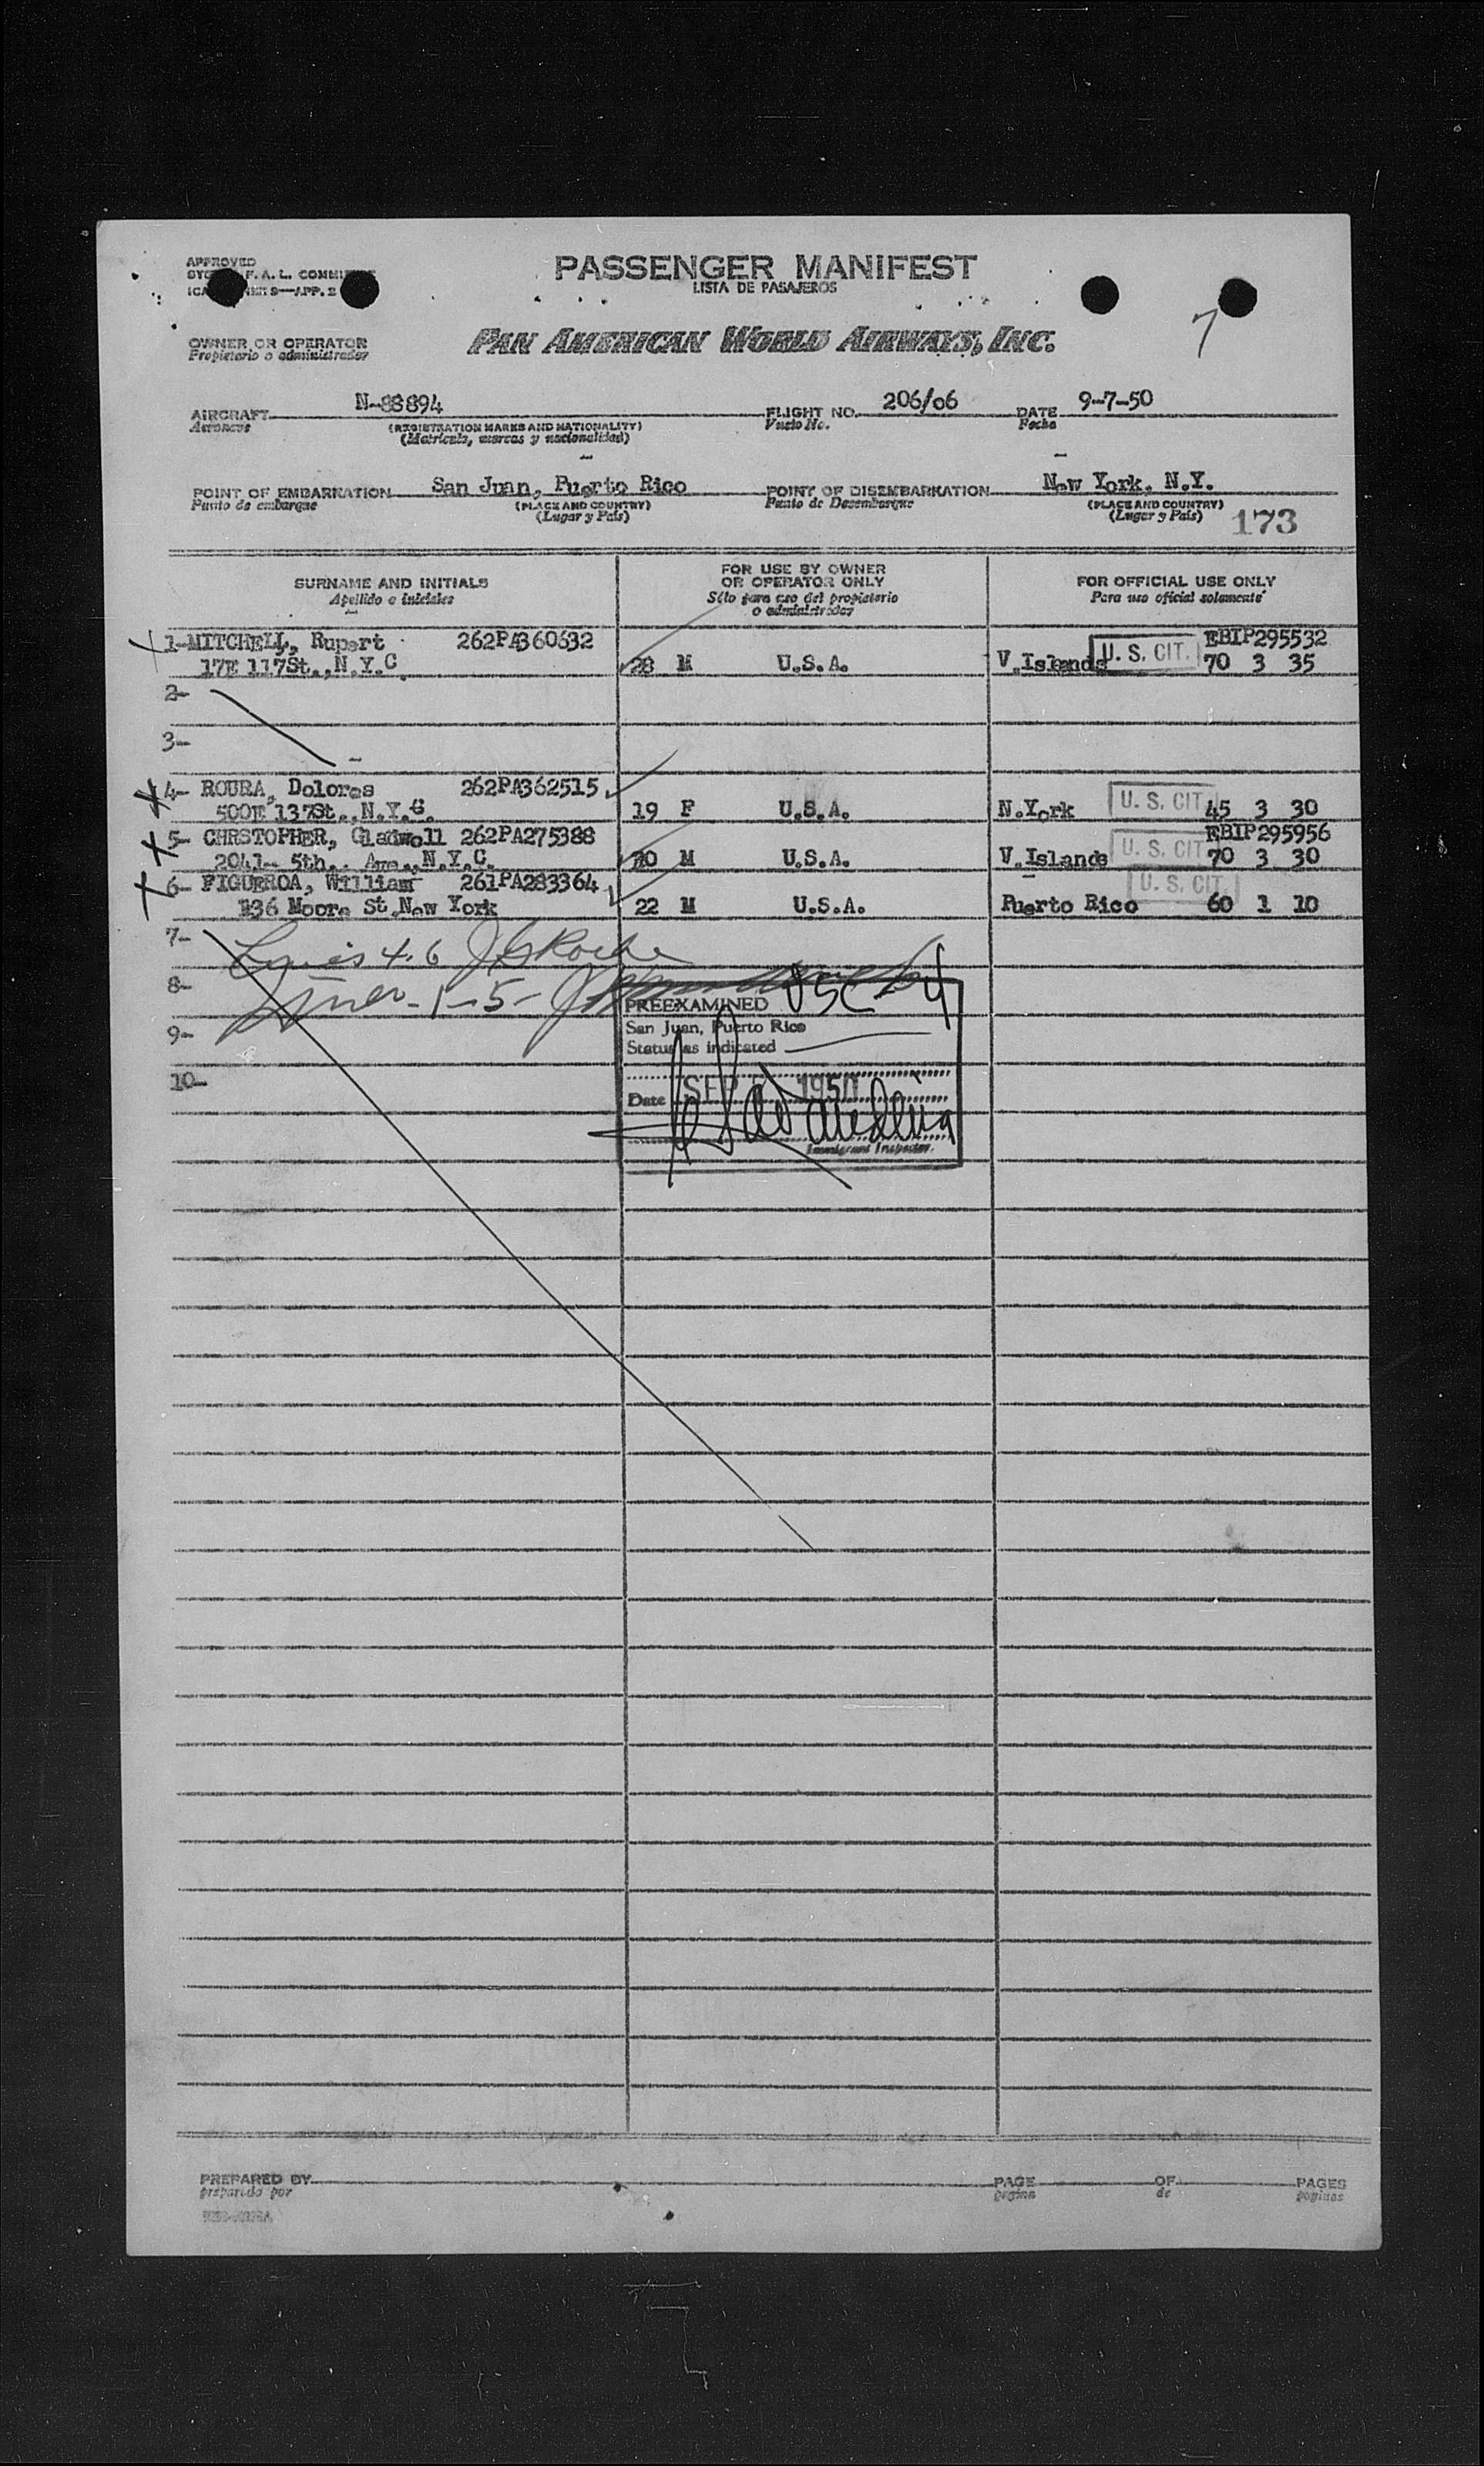 APPROVED
F. A. L.
PASSENGER MANIFEST
LISTA DE PASAJEROS
7
OWNER OR OPERATOR
Propietario o administrador
PAN AMERICAN WORLD AIRWAYS, INC.
AIRCRAFT N-88894 FLIGHT NO. 206/06 DATE 9-7-50
Aeronave (REGISTRATION MARKS AND NATIONALITY) Vuelo No. Fecha
(Matricula, marcas y nacionalidad)
POINT OF EMBARKATION San Juan, Puerto Rico POINT OF DISEMBARKATION New York, N.Y.
Punto de embarque (PLACE AND COUNTRY) Punto de Desembarque (PLACE AND COUNTRY)
(Lugar y País) (Lugar y País) 173
SURNAME AND INITIALS FOR USE BY OWNER OR OPERATOR ONLY FOR OFFICIAL USE ONLY
Apellido e iniciales Sólo para uso del propietario o administrador Para uso oficial solamente
1-MITCHELL, Rupert 262PA360632 EBIP295532
17E 117St.,N.Y.C. 28 M U.S.A. V.Islands U. S. CIT. 70 3 35
2-
3-
4- ROURA, Dolores 262PA362515
500E 137St.,N.Y.C. 19 F U.S.A. N.York U. S. CIT. 45 3 30
5- CHRSTOPHER, Gladwell 262PA275388 EBIP295956
2041- 5th. Ave.,N.Y.C. 20 M U.S.A. V.Islands U. S. CIT. 70 3 30
6- FIGUEROA, William 261PA283364 U. S. CIT.
136 Moore St,New York 22 M U.S.A. Puerto Rico 60 1 10
7-
4.6
8- 1-5-
PREEXAMINED USC-4
9- San Juan, Puerto Rico
Status as indicated
10-
Date SEP 1950
Immigrant Inspector.
PREPARED BY PAGE OF PAGES
preparado por pagina de paginas